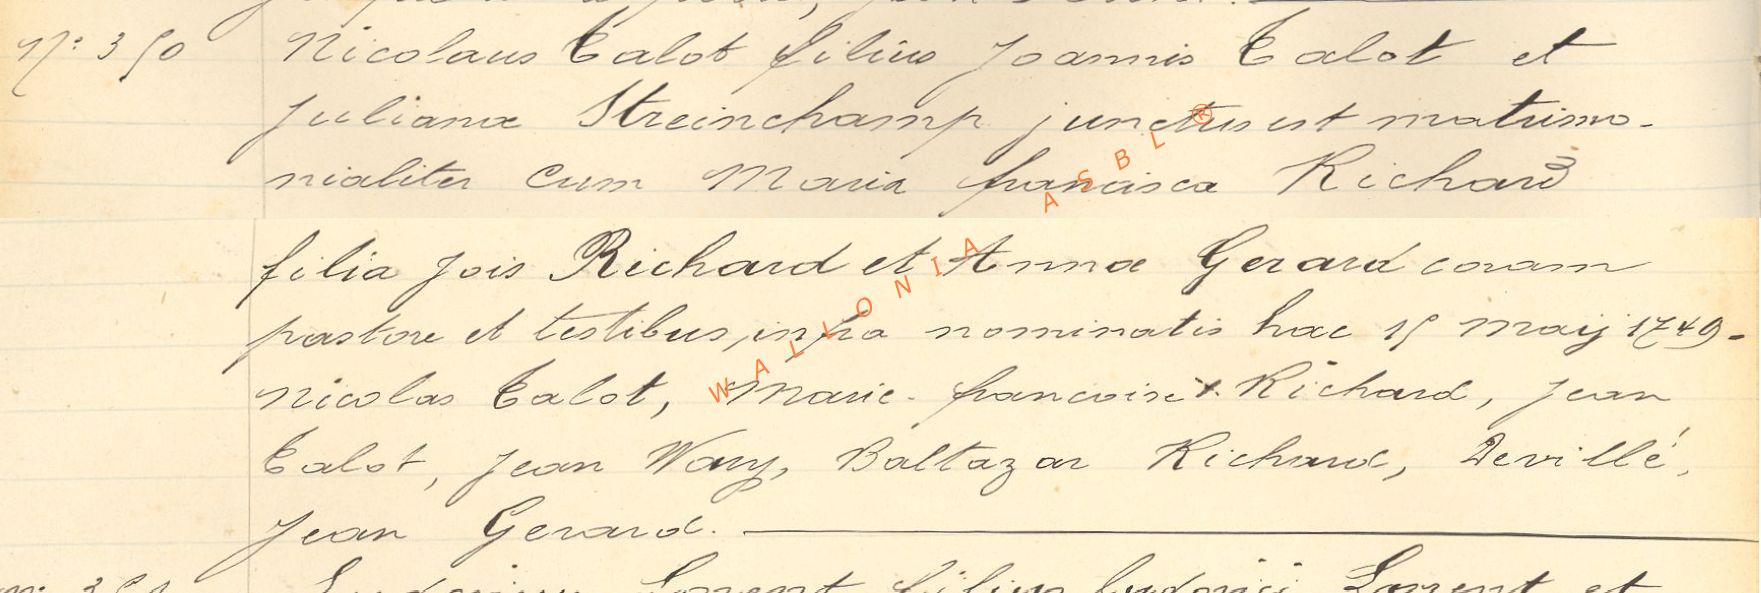 N: 350 Nicolaus Talot filius Joannis Talot et
Julianæ Streinchamp junctus est matrimo-
nialiter cum Maria francisca Richard
filia Jois Richard et Annæ Gerard coram
pastore et testibus, infra nominatis hac 15 maij 1749-
Nicolas Talot, Marie-francoise x Richard, Jean
Talot, Jean Wary, Baltazar Richard, Devillé,
Jean Gerard.
Lorent filius ludovici Lorent et
WALLONIA ASBL ®